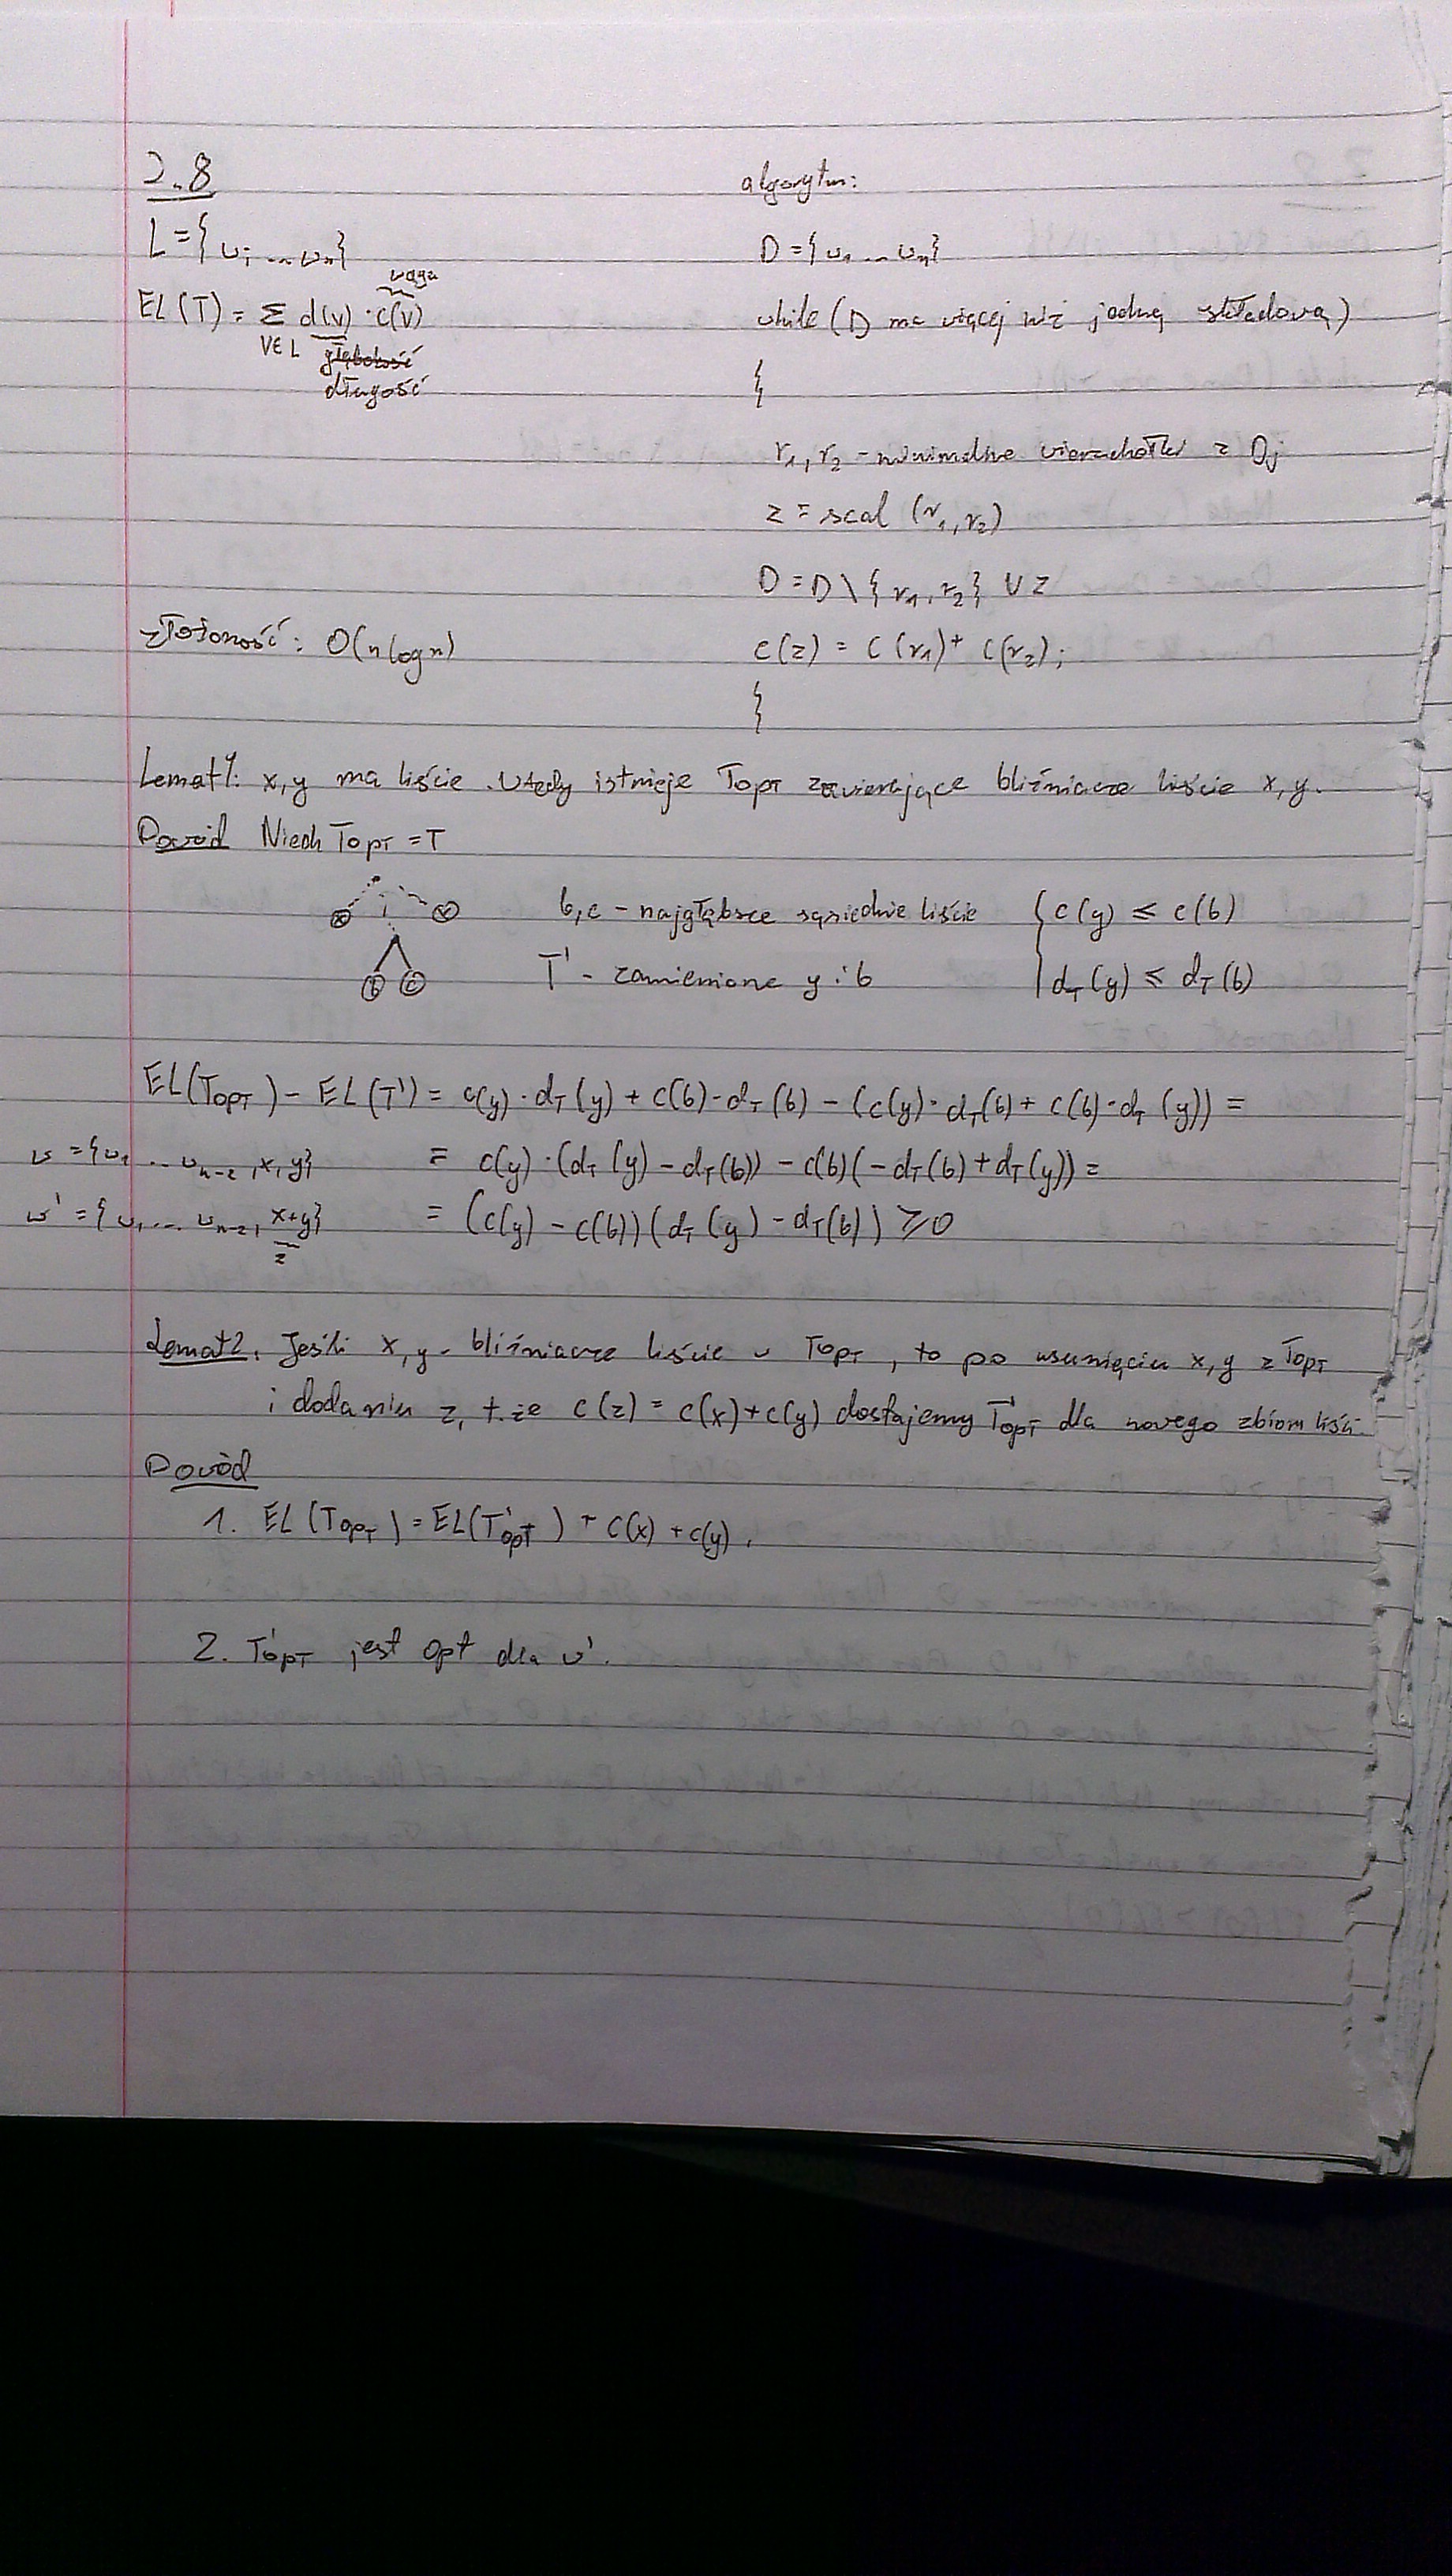 2.8
L = {v1 ... vn}
EL(T) = Σ d(v) · c(v)
waga
v∈L głębokość
długość
złożoność: O(n log n)
algorytm:
D = {v1 ... vn}
while (D ma więcej niż jedną składową)
{
r1, r2 - minimalne wierzchołki z D;
z = scal (r1, r2)
D = D \ {r1, r2} ∪ z
c(z) = c(r1) + c(r2);
}
Lemat1: x, y ma liście. Wtedy istnieje TOPT zawierające bliźniacze liście x, y.
Dowód Niech TOPT = T
x y
b, c - najgłębsze sąsiednie liście { c(y) ≤ c(b)
b c T' - zamienione y i b dT(y) ≤ dT(b)
EL(TOPT) - EL(T') = c(y) · dT(y) + c(b) · dT(b) - (c(y) · dT(b) + c(b) · dT(y)) =
v = {v1 ... vn-2, x, y} = c(y) · (dT(y) - dT(b)) - c(b)(-dT(b) + dT(y)) =
v' = {v1 ... vn-2, x+y} = (c(y) - c(b))(dT(y) - dT(b)) ≥ 0
z
Lemat2. Jeśli x, y - bliźniacze liście w TOPT, to po usunięciu x, y z TOPT
i dodaniu z, t.że c(z) = c(x) + c(y) dostajemy T'OPT dla nowego zbioru liści.
Dowód
1. EL(TOPT) = EL(T'OPT) + c(x) + c(y).
2. T'OPT jest opt dla v'.